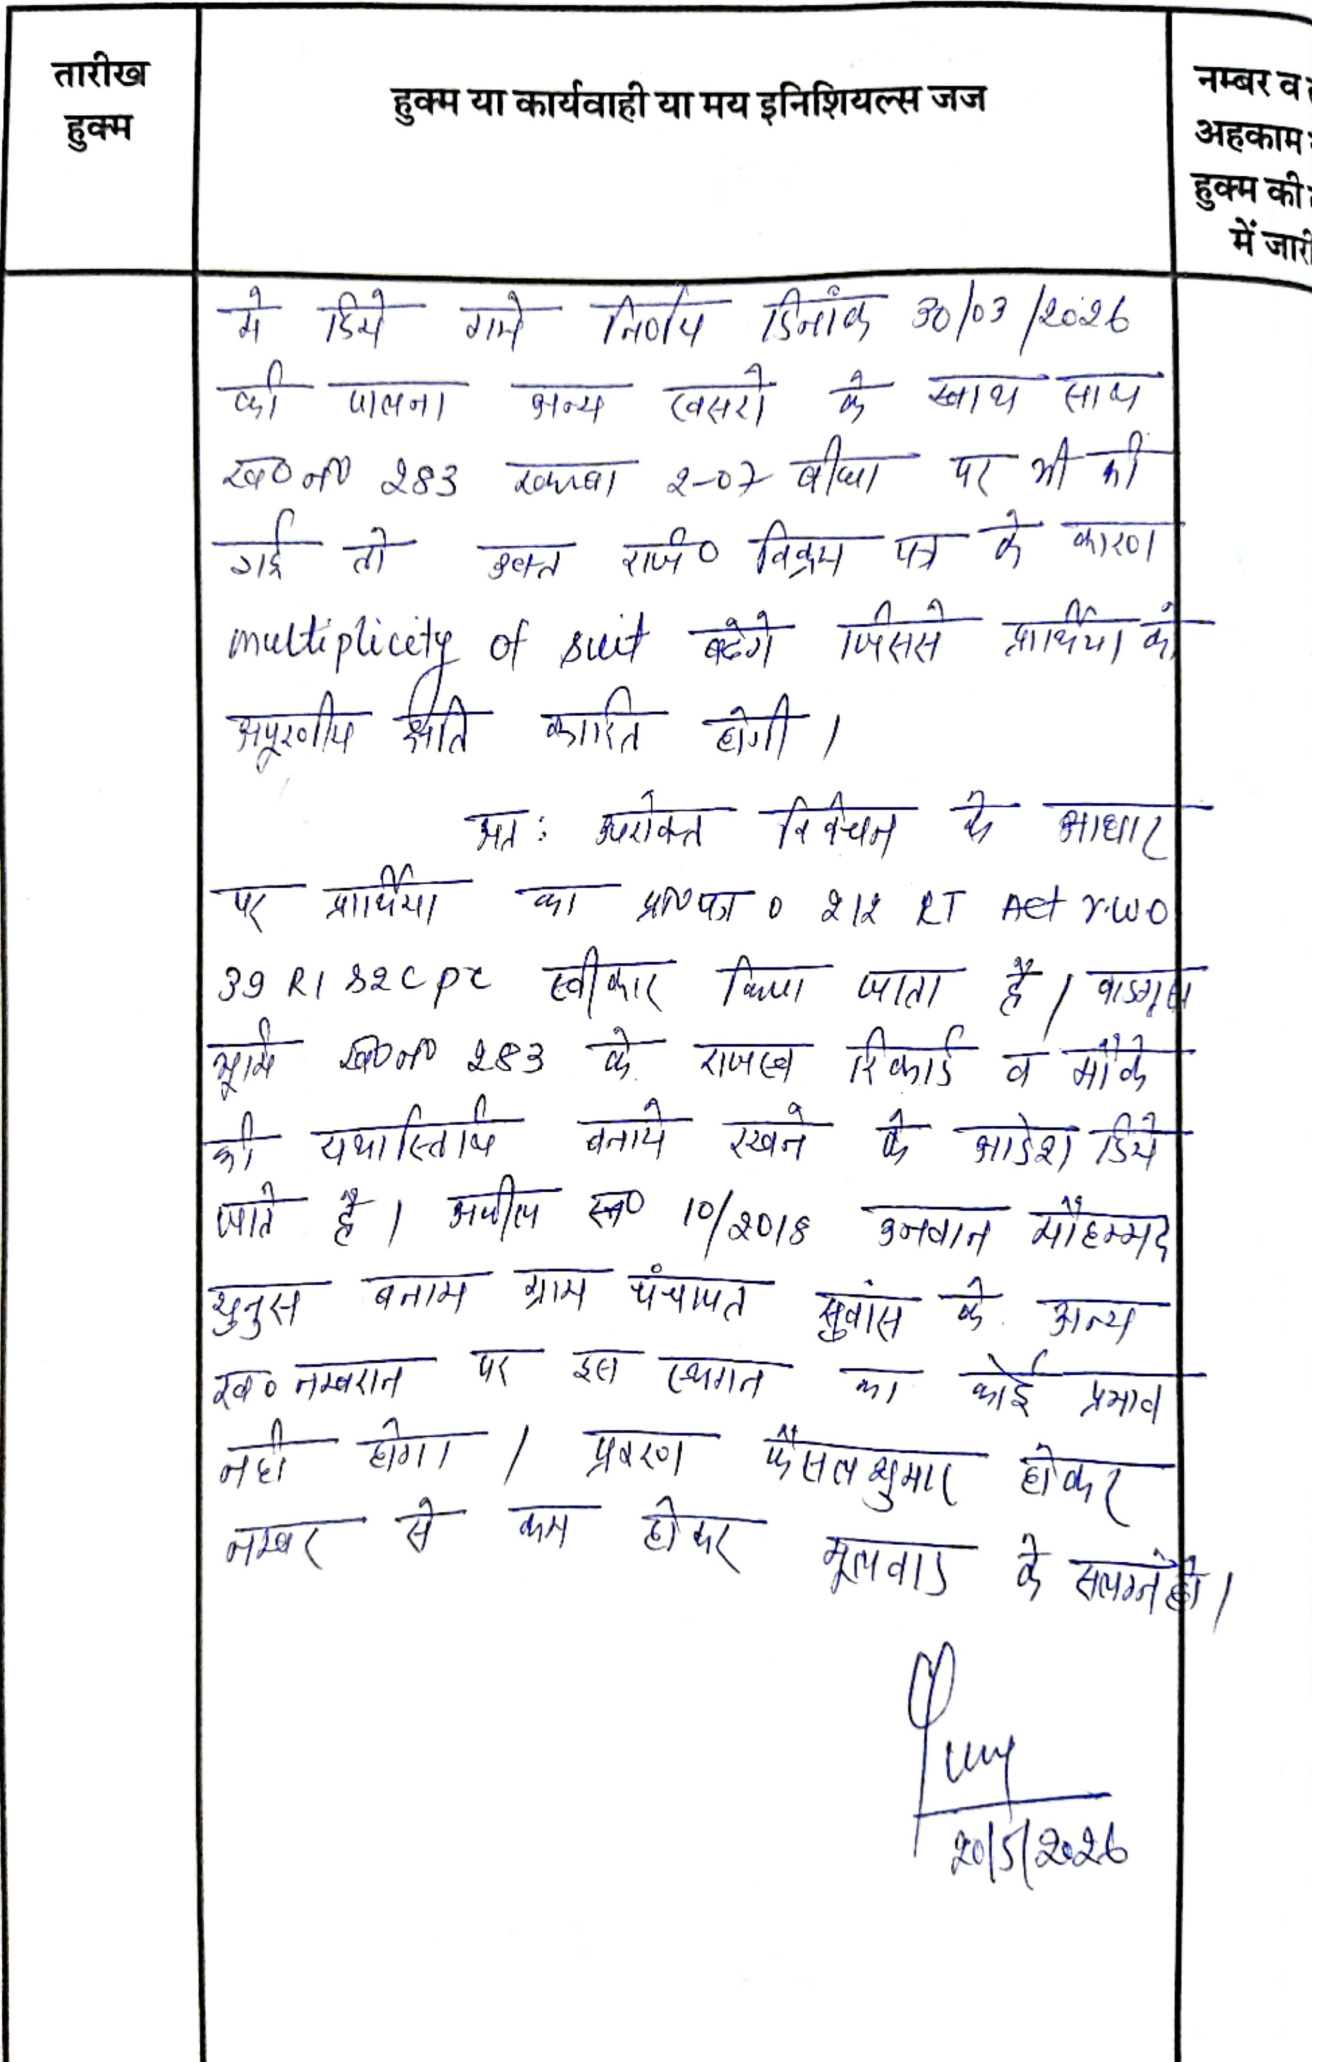 तारीख
हुक्म
हुक्म या कार्यवाही या मय इनिशियल्स जज
नम्बर व
अहकाम
हुक्म की
में जारी
मे दिये गये निर्णय दिनांक 30/03/2026
की पालना अन्य खसरो के साथ साथ
ख० न० 283 रकबा 2-07 बीघा पर भी की
गई तो उक्त रजि० विक्रय पत्र के कारण
multiplicity of suit बढेगे जिससे प्रार्थिया को
अपूरणीय क्षति कारित होगी ।
अतः उपरोक्त विवेचन के आधार
पर प्रार्थिया का 212 RT Act r.w.o
39 R1 &2 CPC स्वीकार किया जाता है । वादग्रस्त
भूमि ख० न० 283 के राजस्व रिकार्ड व मौके
की यथास्तिथि बनाये रखने के आदेश दिये
जाते है । अपील स० 10/2018 उनवान मौहम्मद
युनुस बनाम ग्राम पंचायत सुवांस के अन्य
ख० नम्बरान पर इस स्थगन का कोई प्रभाव
नही होगा । प्रकरण फैसल शुमार होकर
नम्बर से कम होकर मूलवाद के सलग्न हो ।
20/5/2026